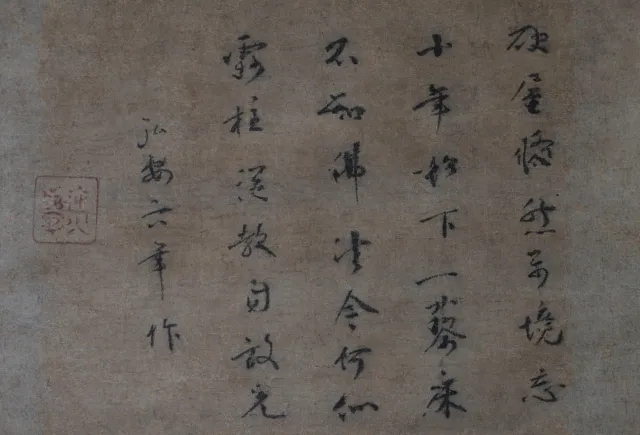 破屋翛然万境忘
小年松下一藜床
不知佛法今何似
露柱從教自放光
弘安六年作